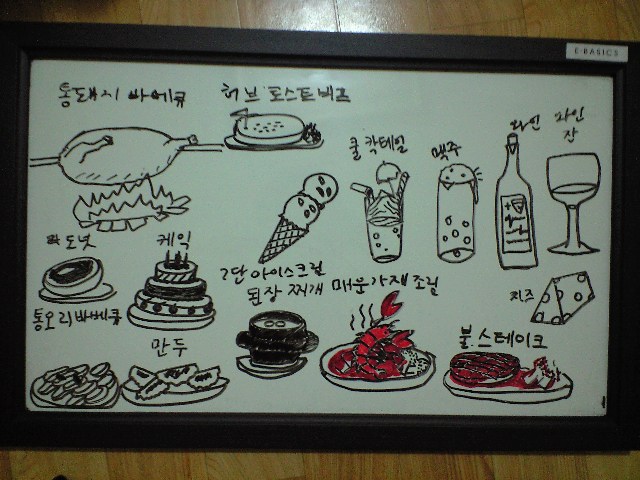 E·BASICS
통돼지 바베큐
허브 로스트 비프
쿨 칵테일
맥주
와인
와인
잔
도넛
케익
2단 아이스크림
치즈
된장 찌개
매운가재조림
통오리바베큐
만두
불.스테이크